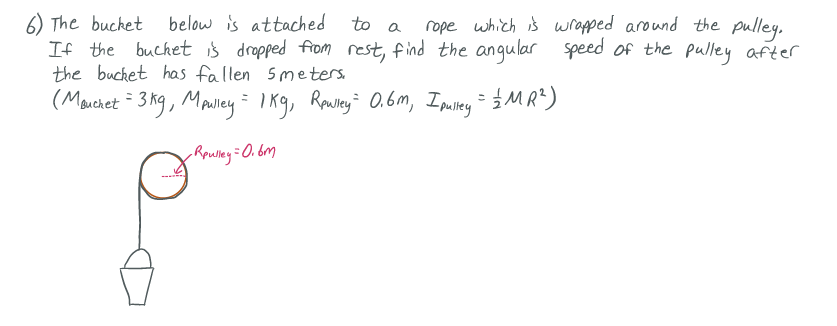 6) The bucket below is attached to a rope which is wrapped around the pulley.
If the bucket is dropped from rest, find the angular speed of the pulley after
the bucket has fallen 5 meters.
(M_Bucket = 3 kg, M_Pulley = 1 kg, R_Pulley = 0.6m, I_Pulley = ½ M R²)
R_Pulley = 0.6m